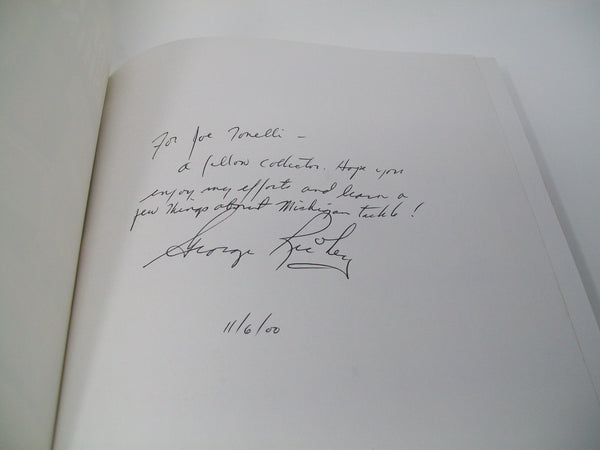 For Joe Tonelli –
a fellow collector. Hope you
enjoy my efforts and learn a
few things about Michigan tackle!
George Richey
11/6/00